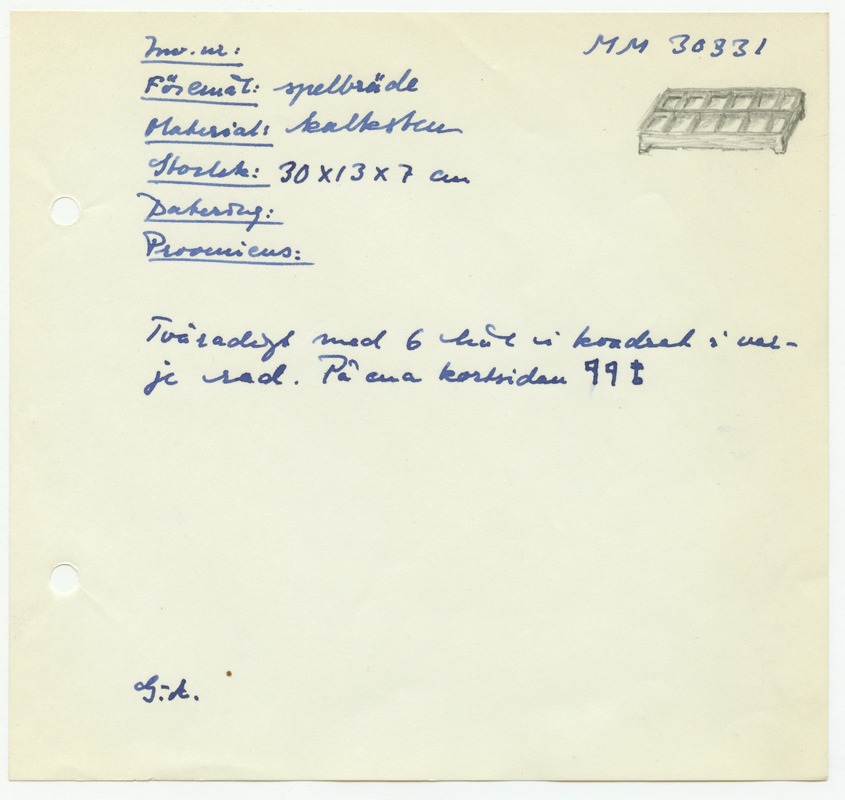 Inv. nr: MM 30331
Föremål: spelbräde
Material: kalksten
Storlek: 30 x 13 x 7 cm
Datering:
Proveniens:
Tvåradigt med 6 hål i kvadrat i var-
je rad. På ena kortsidan
G.K.